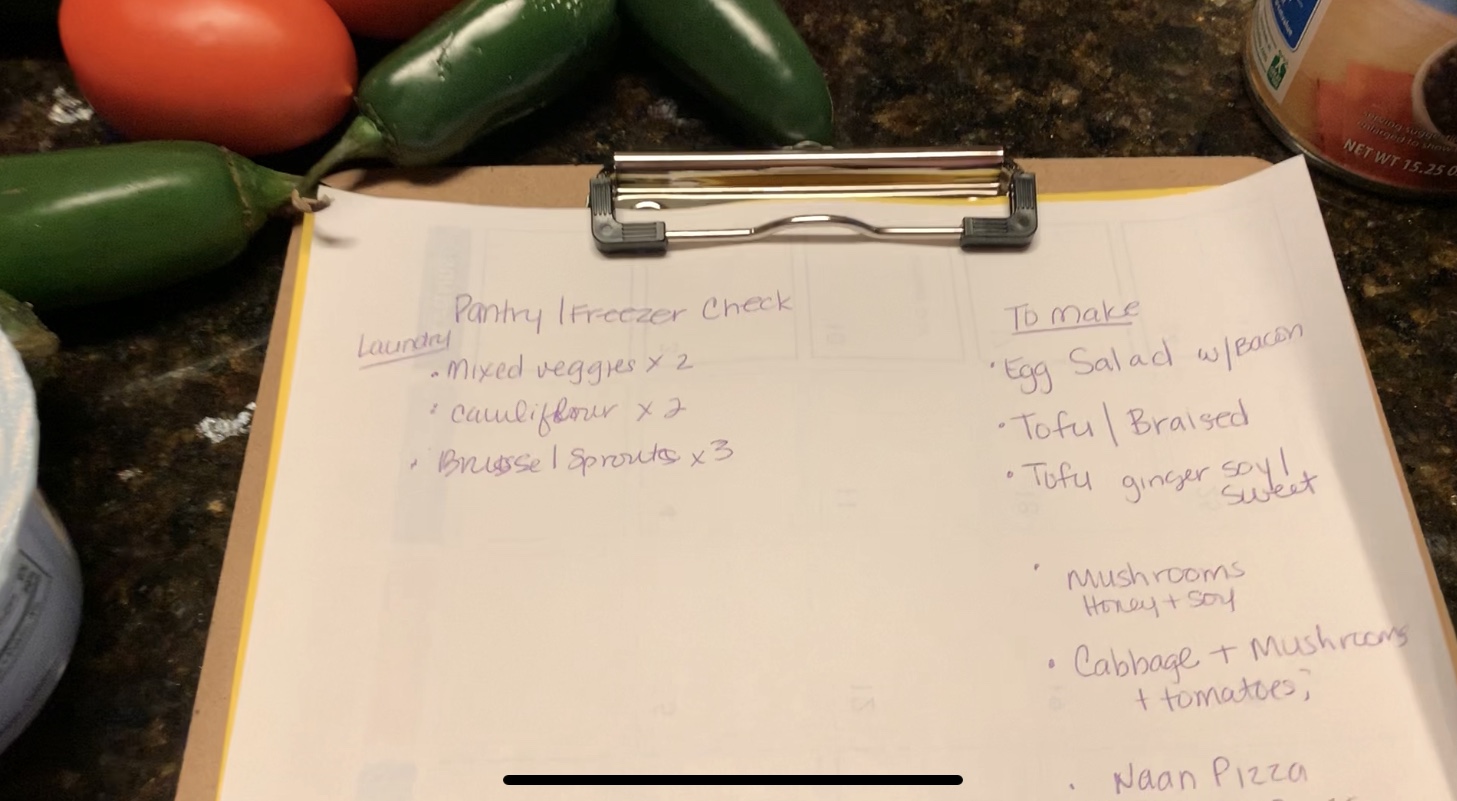 Pantry / Freezer Check
Laundry
• Mixed veggies x 2
• cauliflour x 2
• Brussel Sprouts x3
To make
• Egg Salad w/Bacon
• Tofu / Braised
• Tofu ginger soy /
sweet
• Mushrooms
Honey + soy
• Cabbage + Mushrooms
+ tomatoes;
• Naan Pizza
NET WT 15.25 O